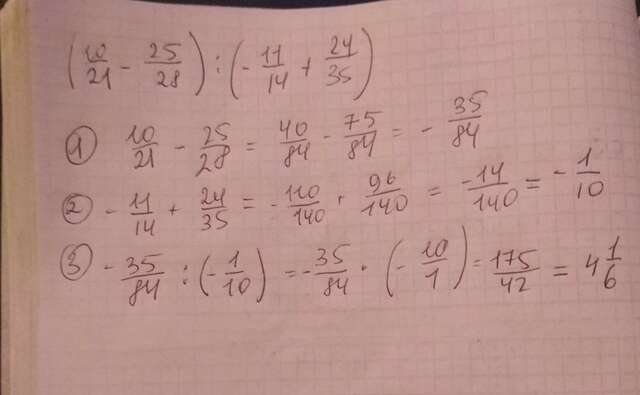 (10/21 - 25/28) : (-11/14 + 24/35)
① 10/21 - 25/28 = 40/84 - 75/84 = - 35/84
② - 11/14 + 24/35 = - 110/140 + 96/140 = -14/140 = - 1/10
③ - 35/84 : (- 1/10) = - 35/84 · (- 10/1) = 175/42 = 4 1/6